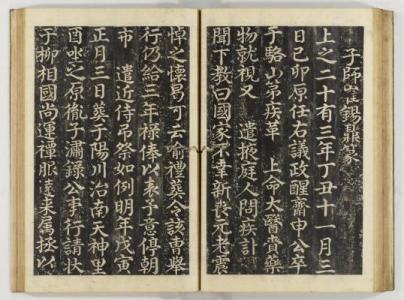 子師…錫鼎篆
上之二十有三年丁丑十一月三
日己卯原任右議政醒齋申公卒
于駱山第疾革　上命太醫賚藥
物就視又　遣掖庭人問疾訃
聞下教曰國家不幸新喪元老震
悼之懷曷可云喻禮葬令該曹舉
行仍給三年祿俸以表予意停朝
市　遣近侍吊祭如例明年戊寅
正月三日葬于陽川治南天神里
酉坐之原胤子潚錄公事行請狀
子柳相國尚運禫服遠來屬拯以